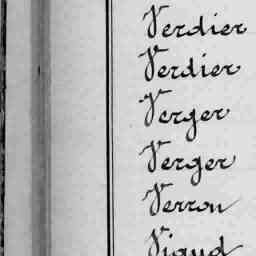 Verdier
Verdier
Verger
Verger
Verron
Vigud